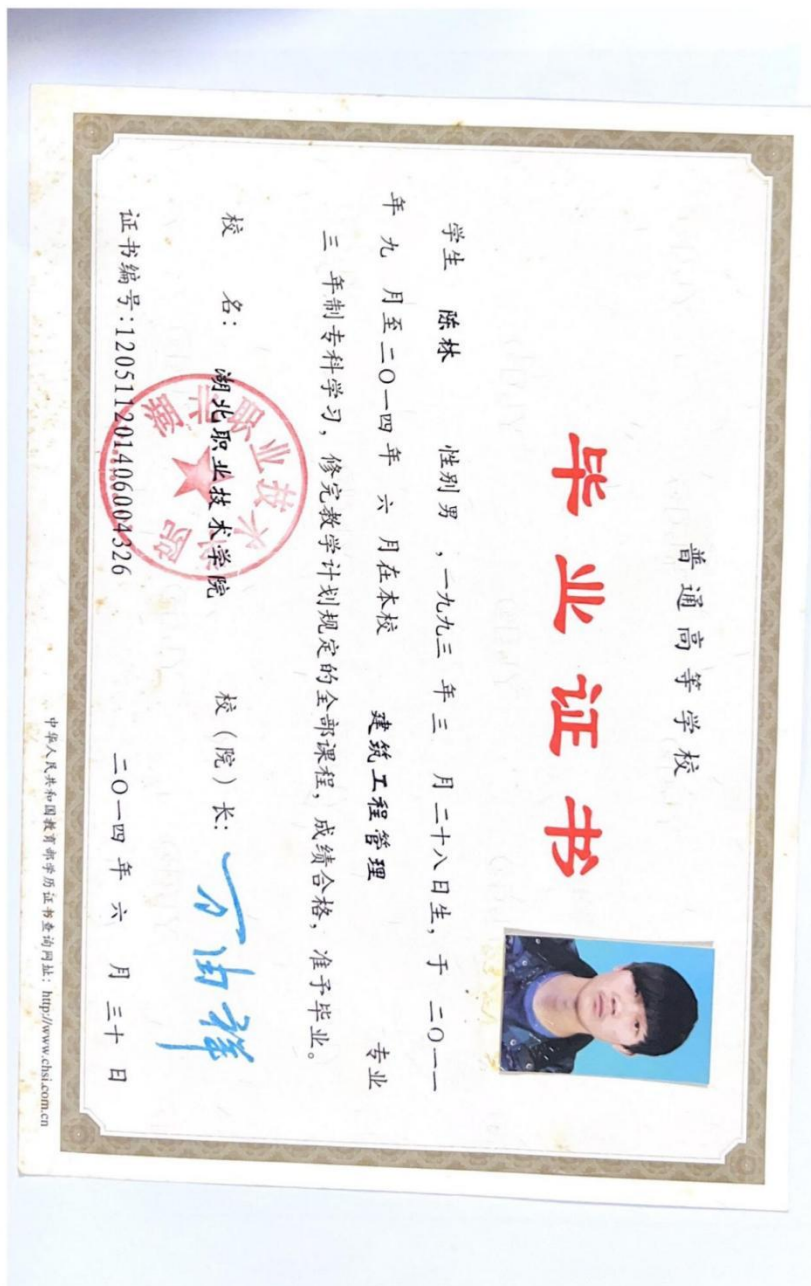 普通高等学校
毕业证书
学生 陈林 性别 男 ，一九九三 年 三 月 二十八日生，于 二〇一一
年 九 月至二〇一四年 六 月在本校 建筑工程管理 专业
三 年制专科学习，修完教学计划规定的全部课程，成绩合格，准予毕业。
校 名： 湖北职业技术学院 校（院）长： 万由祥
湖北职业技术学院
证书编号:120511201406004326 二〇一四 年 六 月 三十 日
中华人民共和国教育部学历证书查询网址：http://www.chsi.com.cn